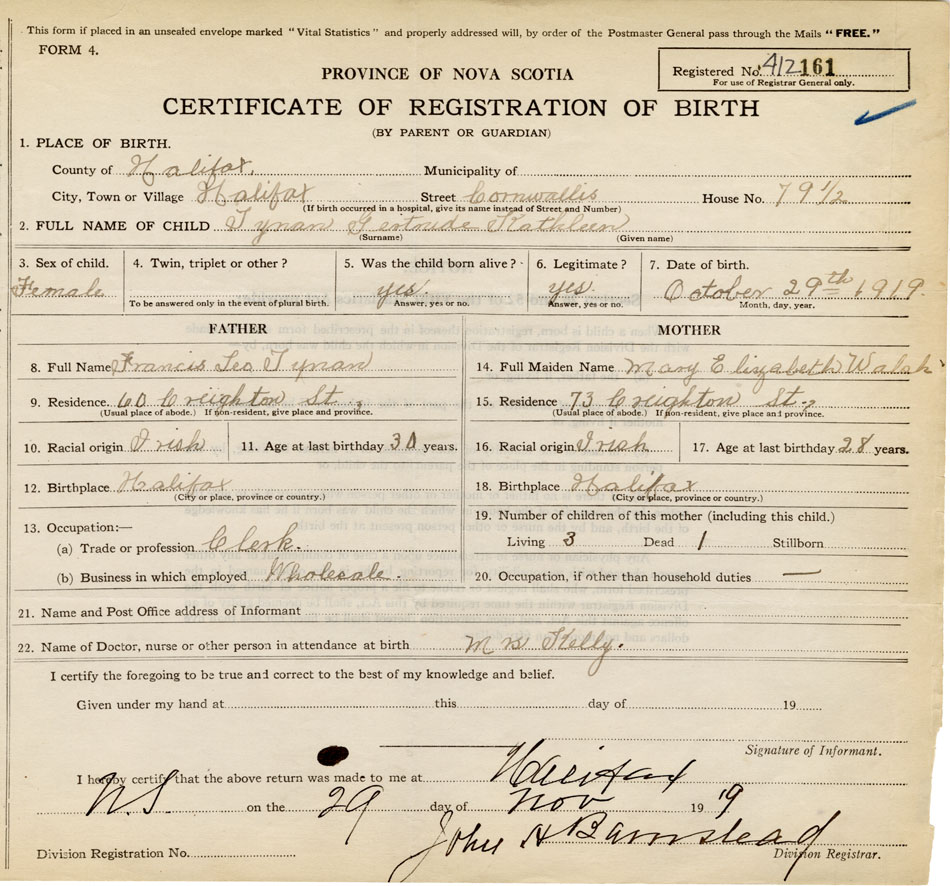 This form if placed in an unsealed envelope marked "Vital Statistics" and properly addressed will, by order of the Postmaster General pass through the Mails "FREE."
FORM 4.
Registered No. 412161
For use of Registrar General only.
PROVINCE OF NOVA SCOTIA
CERTIFICATE OF REGISTRATION OF BIRTH
(BY PARENT OR GUARDIAN)
1. PLACE OF BIRTH.
County of Halifax. Municipality of
City, Town or Village Halifax Street Cornwallis House No. 79 1/2
(If birth occurred in a hospital, give its name instead of Street and Number)
2. FULL NAME OF CHILD Tynan Gertrude Kathleen
(Surname) (Given name)
3. Sex of child. 4. Twin, triplet or other? 5. Was the child born alive? 6. Legitimate? 7. Date of birth.
Female yes yes October 29th 1919
To be answered only in the event of plural birth. Answer, yes or no. Answer, yes or no. Month, day, year.
FATHER MOTHER
8. Full Name Francis Leo Tynan 14. Full Maiden Name Mary Elizabeth Walsh
9. Residence. 60 Creighton St. 15. Residence 73 Creighton St.
(Usual place of abode.) If non-resident, give place and province. (Usual place of abode.) If non-resident, give place and province.
10. Racial origin Irish 11. Age at last birthday 30 years. 16. Racial origin Irish 17. Age at last birthday 28 years.
12. Birthplace Halifax 18. Birthplace Halifax
(City or place, province or country.) (City or place, province or country.)
13. Occupation:— 19. Number of children of this mother (including this child.)
(a) Trade or profession Clerk. Living 3 Dead 1 Stillborn
(b) Business in which employed Wholesale. 20. Occupation, if other than household duties —
21. Name and Post Office address of Informant
22. Name of Doctor, nurse or other person in attendance at birth Mrs Kelly.
I certify the foregoing to be true and correct to the best of my knowledge and belief.
Given under my hand at this day of 19
Signature of Informant.
I hereby certify that the above return was made to me at Halifax
N.S. on the 29 day of Nov 1919
John H Barnstead
Division Registration No. Division Registrar.